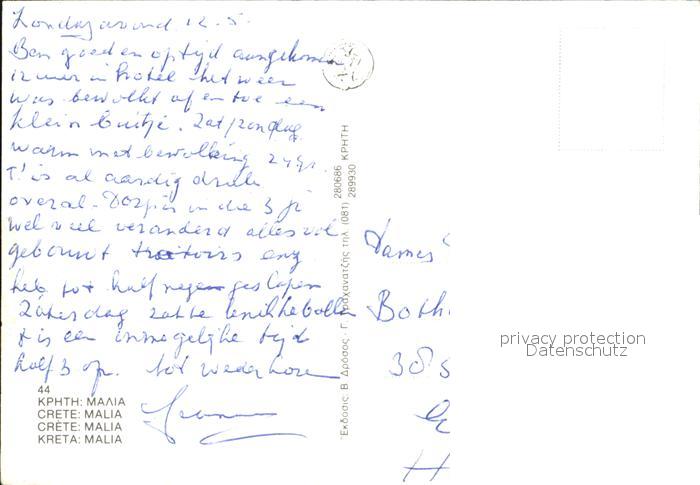 Zondagavond 12.5.
Ben goed en op tijd aangekomen
12 uur in hotel het weer
was bewolkt af en toe een
klein buitje. Zat/zondag
warm met bewolking 24 gr.
T! is al aardig druk
overal. Dorp is in die 3 jr
wel veel veranderd alles vol
gebouwt trottoirs enz
heb tot half negen geslapen
Zaterdag zat te knikkebollen
t is een onmogelijke tijd
half 3 op. tot wederhoren
Dames
Both
385
H
44
ΚΡΗΤΗ: ΜΑΛΙΑ
CRETE: MALIA
CRÈTE: MALIA
KRETA: MALIA
Έκδοσις: Β. Δρόσος - Γ. τηλ. (081) 280686 ΚΡΗΤΗ
289930
privacy protection
Datenschutz